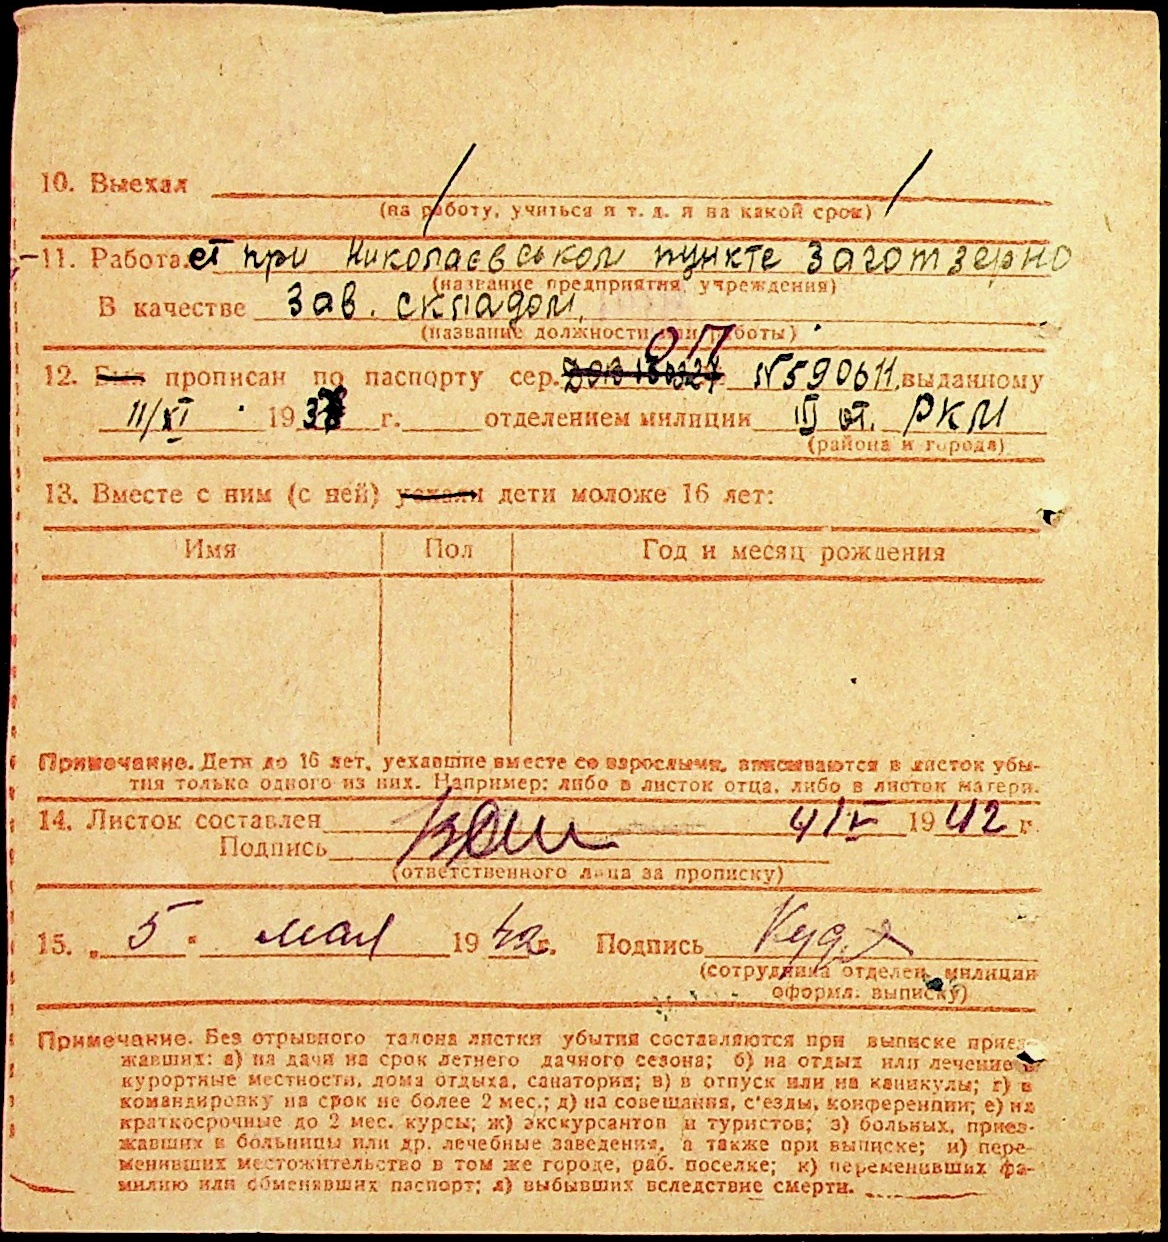 10. Выехал
(на работу, учиться и т. д. и на какой срок)
11. Работает при Николаєвськом пункте Заготзерно
(название предприятия, учреждения)
В качестве зав. складом.
(название должности или работы)
ОП
12. Был прописан по паспорту сер. №590611, выданному
11/XI 1937 г. отделением милиции III от. РКМ
(района и города)
13. Вместе с ним (с ней) уехали дети моложе 16 лет:
Имя Пол Год и месяц рождения
Примечание. Дети до 16 лет, уехавшие вместе со взрослыми, вписываются в листок убы-
тия только одного из них. Например: либо в листок отца, либо в листок матери.
14. Листок составлен 4/V 1942 г.
Подпись
(ответственного лица за прописку)
15. „5" мая 1942 г. Подпись
(сотрудника отделен. милиции
оформл. выписку)
Примечание. Без отрывного талона листки убытия составляются при выписке приез-
жавших: а) на дачи на срок летнего дачного сезона; б) на отдых или лечение в
курортные местности, дома отдыха, санатории; в) в отпуск или на каникулы; г) в
командировку на срок не более 2 мес.; д) на совещания, с'езды, конференции; е) на
краткосрочные до 2 мес. курсы; ж) экскурсантов и туристов; з) больных, приез-
жавших в больницы или др. лечебные заведения, а также при выписке; и) пере-
менивших местожительство в том же городе, раб. поселке; к) переменивших фа-
милию или обменявших паспорт; л) выбывших вследствие смерти.